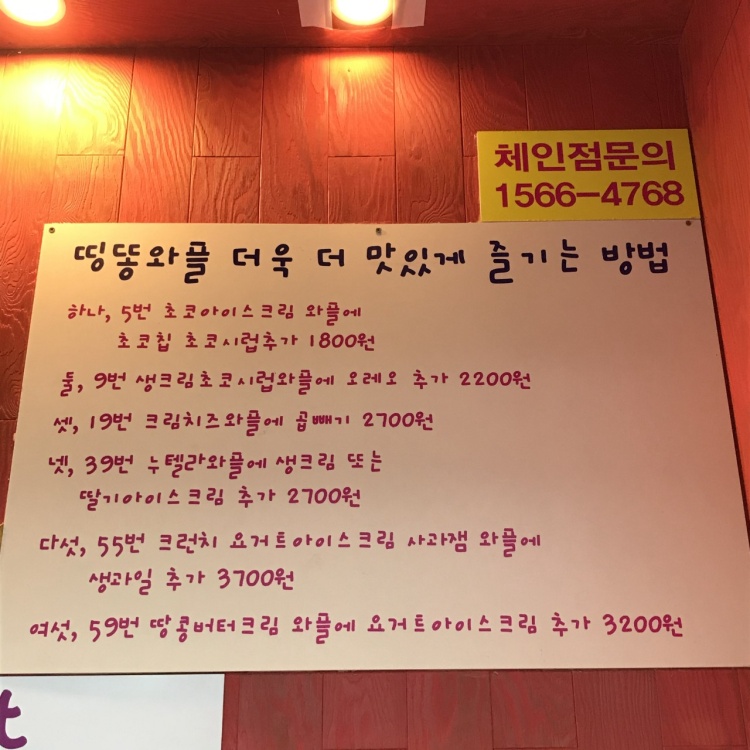 체인점문의
1566-4768
띵똥와플 더욱 더 맛있게 즐기는 방법
하나, 5번 초코아이스크림 와플에
초코칩 초코시럽추가 1800원
둘, 9번 생크림초코시럽와플에 오레오 추가 2200원
셋, 19번 크림치즈와플에 곱빼기 2700원
넷, 39번 누텔라와플에 생크림 또는
딸기아이스크림 추가 2700원
다섯, 55번 크런치 요거트아이스크림 사과잼 와플에
생과일 추가 3700원
여섯, 59번 땅콩버터크림 와플에 요거트아이스크림 추가 3200원
t